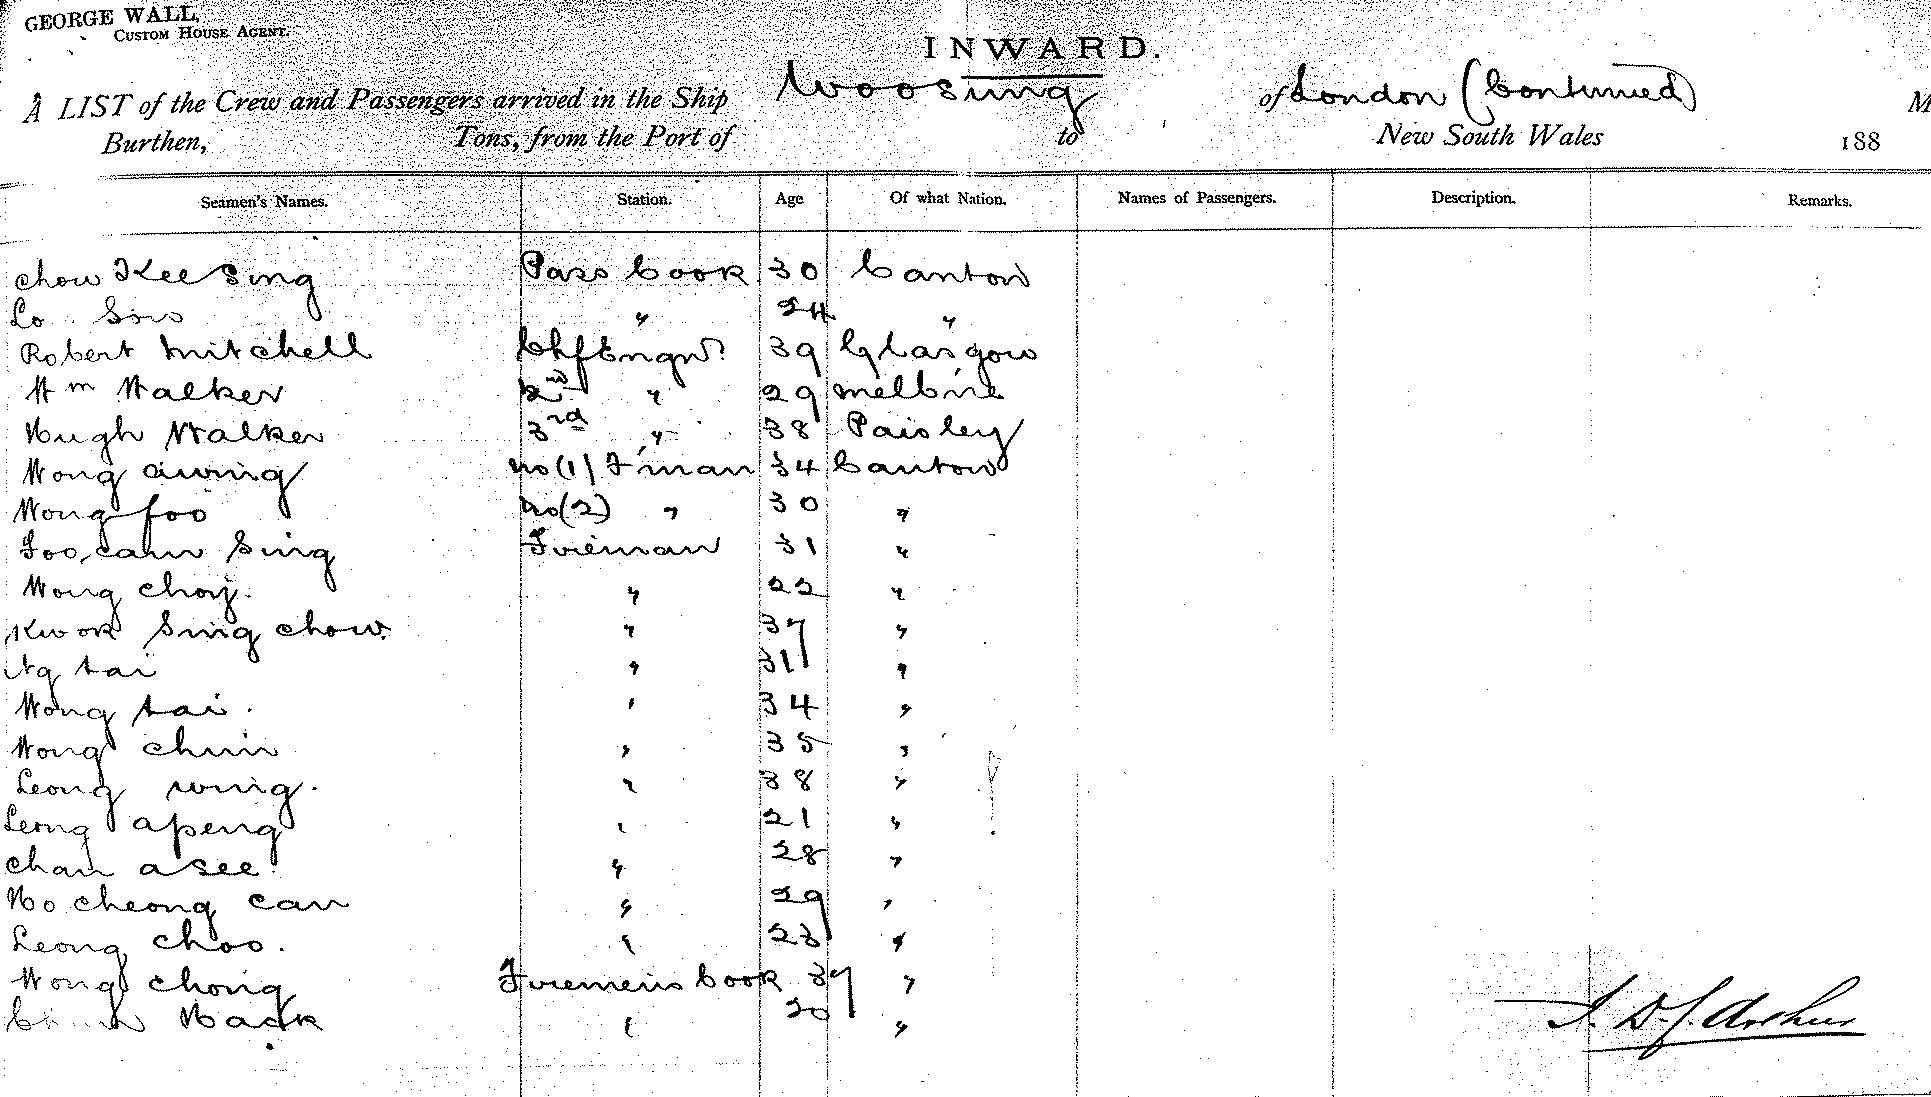 GEORGE WALL,
CUSTOM HOUSE AGENT.
INWARD.
A LIST of the Crew and Passengers arrived in the Ship Woosung of London (Continued) M
Burthen, Tons, from the Port of to New South Wales 188
Seamen's Names. Station. Age Of what Nation. Names of Passengers. Description. Remarks.
Chow Kee Sing Pass Cook 30 Canton
Lo Sow " 24 "
Robert Mitchell Chf Engnr 39 Glasgow
Wm Walker 2nd " 29 Melb'ne
Hugh Walker 3rd " 38 Paisley
Wong awing No (1) F'man 34 Canton
Wong foo No (2) " 30 "
Foo cam Sing Fireman 31 "
Wong choy. " 22 "
Kwok Sing chow. " 37 "
Ng tai " 31 "
Wong tai. " 34 "
Wong chun " 35 "
Leong wing. " 38 "
Leong apeng " 21 "
Chan a see. " 28 "
Ho cheong can " 29 "
Leong choo. " 23 "
Wong chong Firemens Cook 37 "
Hack " 20 "
Arthur